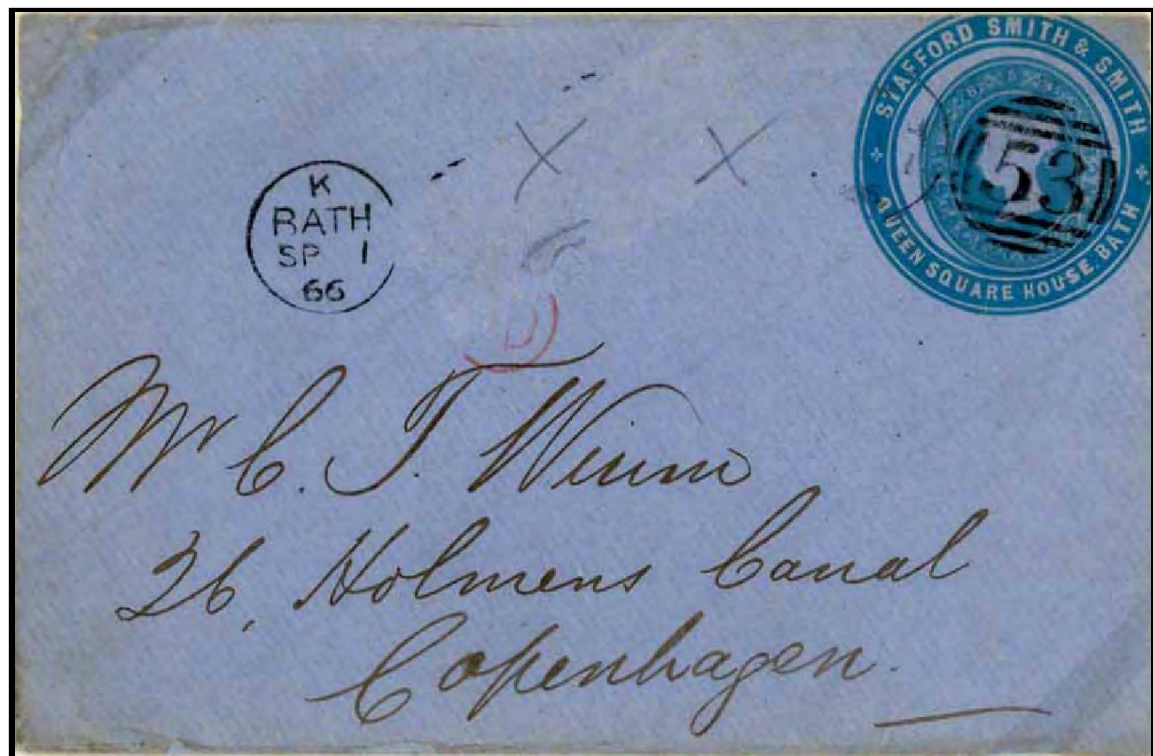 STAFFORD SMITH & SMITH
QUEEN SQUARE HOUSE. BATH
53
K
BATH
SP 1
66
D
Mr C. T. Wiinn
36, Holmens Canal
Copenhagen.